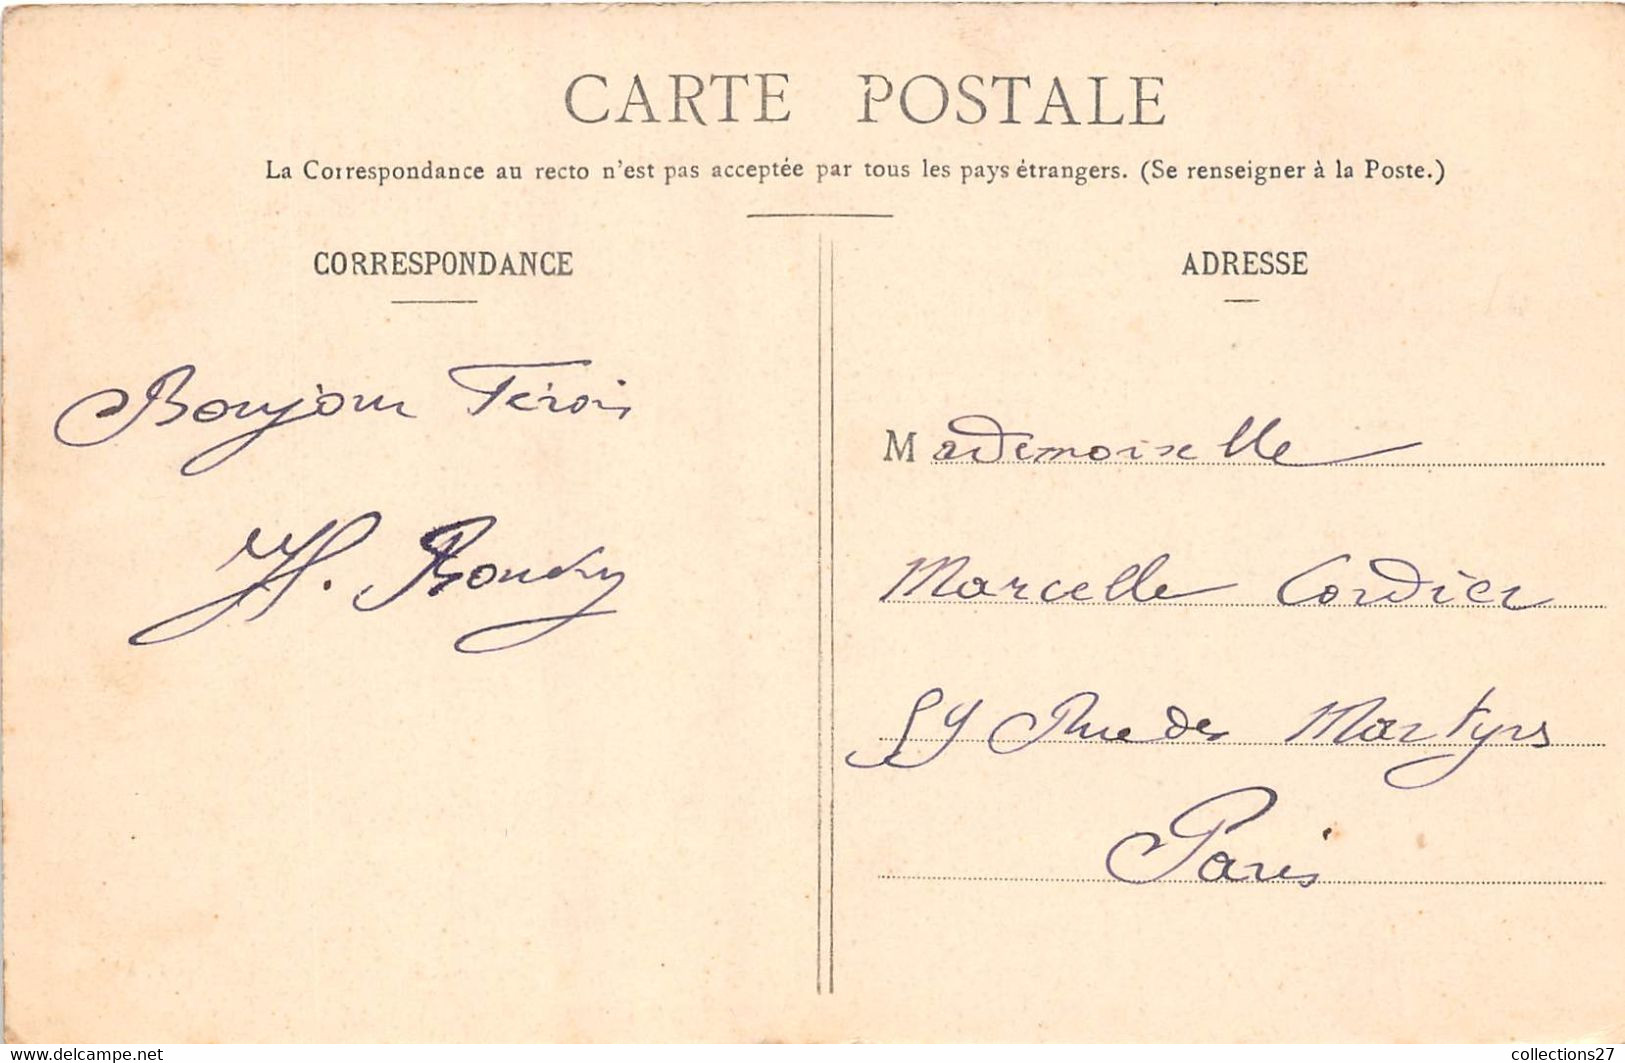 CARTE POSTALE
La Correspondance au recto n'est pas acceptée par tous les pays étrangers. (Se renseigner à la Poste.)
CORRESPONDANCE
Bonjour
H.
ADRESSE
Mademoiselle
Marcelle Cordier
59 Rue des Martyrs
Paris
www.delcampe.net
collections27